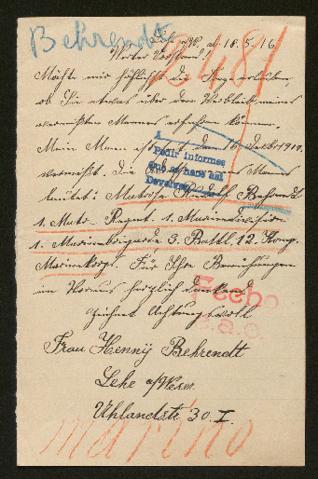 Behrendt
Lehe a/W. d. 18.5.16.
Werter Vorstand!
Möchte mir höflichst die Frage erlauben,
ob Sie etwas über den Verbleib meines
vermißten Mannes erfahren können.
Mein Mann ist seit dem 16. 1914.
vermißt. Die meines Mannes
lautet: Matrose Behrendt
1. Matr. Regmt. 1. Marinedivision
1. Marinebrigade, 3. Battl. 12. Komp.
Marinekorps. Für Ihre Bemühungen
im Voraus herzlich dankend
zeichnet Achtungsvoll
Frau Henny Behrendt
Lehe a/Weser
Uhlandstr. 30. I.
Pedir informes
Devolver
marino